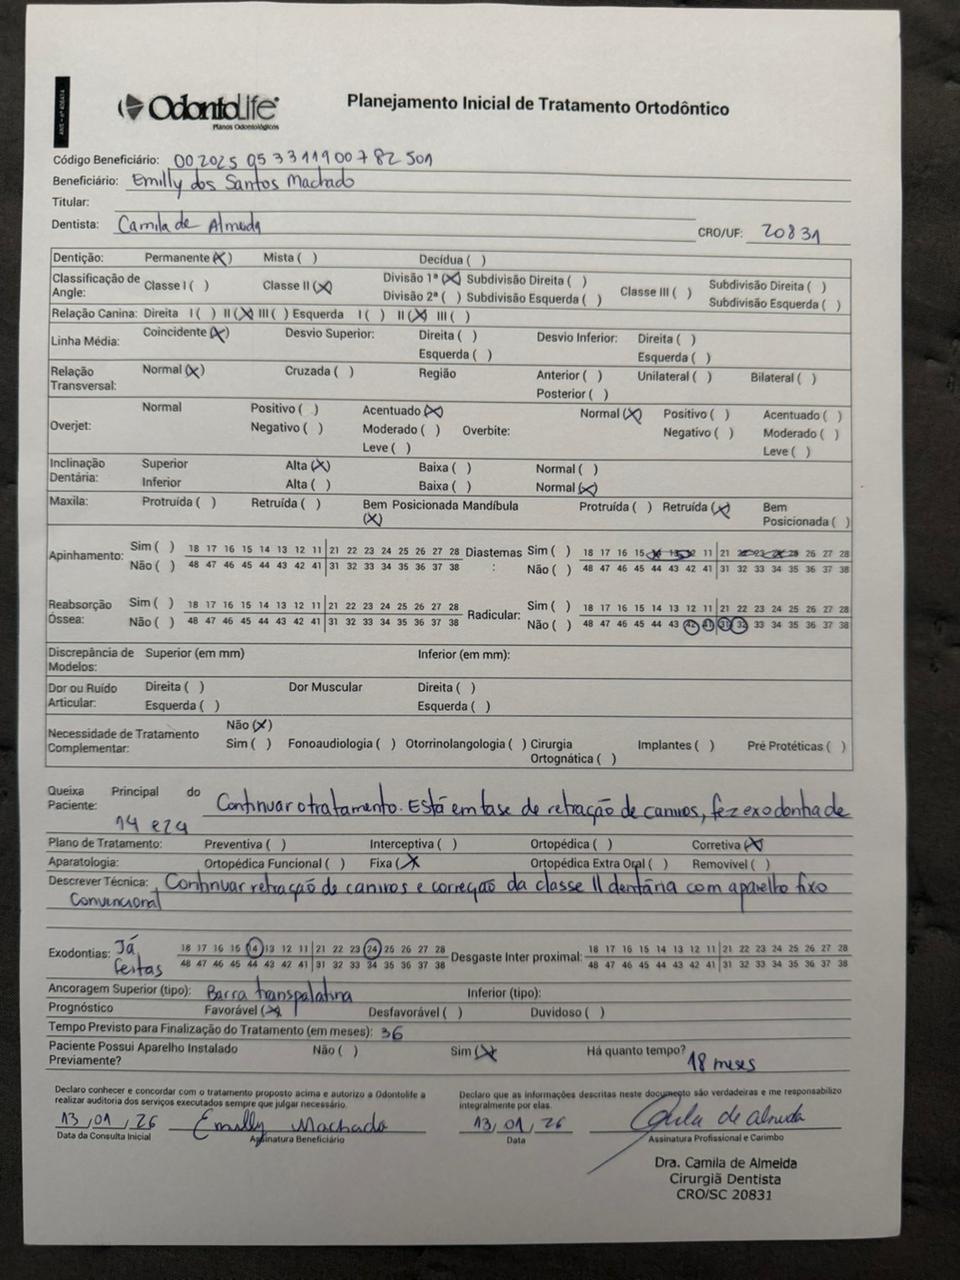 OdontoLife
Planos Odontológicos
Planejamento Inicial de Tratamento Ortodôntico
Código Beneficiário: 00 2025 05 33 11900 782 501
Beneficiário: Emilly dos Santos Machado
Titular:
Dentista: Camila de Almeida CRO/UF: 20831
Dentição: Permanente (X) Mista ( ) Decídua ( )
Classificação de Angle: Classe I ( ) Classe II (X) Divisão 1ª (X) Subdivisão Direita ( ) Classe III ( ) Subdivisão Direita ( )
Divisão 2ª ( ) Subdivisão Esquerda ( ) Subdivisão Esquerda ( )
Relação Canina: Direita I ( ) II (X) III ( ) Esquerda I ( ) II (X) III ( )
Linha Média: Coincidente (X) Desvio Superior: Direita ( ) Desvio Inferior: Direita ( )
Esquerda ( ) Esquerda ( )
Relação Transversal: Normal (X) Cruzada ( ) Região Anterior ( ) Unilateral ( ) Bilateral ( )
Posterior ( )
Overjet: Normal Positivo ( ) Acentuado (X) Overbite: Normal (X) Positivo ( ) Acentuado ( )
Negativo ( ) Moderado ( ) Negativo ( ) Moderado ( )
Leve ( ) Leve ( )
Inclinação Dentária: Superior Alta (X) Baixa ( ) Normal ( )
Inferior Alta ( ) Baixa ( ) Normal (X)
Maxila: Protruída ( ) Retruída ( ) Bem Posicionada (X) Mandíbula Protruída ( ) Retruída (X) Bem Posicionada ( )
Apinhamento: Sim ( ) 18 17 16 15 14 13 12 11 21 22 23 24 25 26 27 28 Diastemas: Sim ( ) 18 17 16 15 14 13 12 11 21 22 23 24 25 26 27 28
Não ( ) 48 47 46 45 44 43 42 41 31 32 33 34 35 36 37 38 Não ( ) 48 47 46 45 44 43 42 41 31 32 33 34 35 36 37 38
Reabsorção Óssea: Sim ( ) 18 17 16 15 14 13 12 11 21 22 23 24 25 26 27 28 Radicular: Sim ( ) 18 17 16 15 14 13 12 11 21 22 23 24 25 26 27 28
Não ( ) 48 47 46 45 44 43 42 41 31 32 33 34 35 36 37 38 Não ( ) 48 47 46 45 44 43 42 41 31 32 33 34 35 36 37 38
Discrepância de Modelos: Superior (em mm) Inferior (em mm):
Dor ou Ruído Articular: Direita ( ) Dor Muscular Direita ( )
Esquerda ( ) Esquerda ( )
Necessidade de Tratamento Complementar: Não (X)
Sim ( ) Fonoaudiologia ( ) Otorrinolangologia ( ) Cirurgia Ortognática ( ) Implantes ( ) Pré Protéticas ( )
Queixa Principal do Paciente: Continuar o tratamento. Está em fase de retração de caninos, fez exodontia de
14 e 24
Plano de Tratamento: Preventiva ( ) Interceptiva ( ) Ortopédica ( ) Corretiva (X)
Aparatologia: Ortopédica Funcional ( ) Fixa (X) Ortopédica Extra Oral ( ) Removível ( )
Descrever Técnica: Continuar retração de caninos e correção da classe II dentária com aparelho fixo
Convencional
Exodontias: Já feitas 18 17 16 15 14 13 12 11 21 22 23 24 25 26 27 28 Desgaste Inter proximal: 18 17 16 15 14 13 12 11 21 22 23 24 25 26 27 28
48 47 46 45 44 43 42 41 31 32 33 34 35 36 37 38 48 47 46 45 44 43 42 41 31 32 33 34 35 36 37 38
Ancoragem Superior (tipo): Barra transpalatina Inferior (tipo):
Prognóstico Favorável (X) Desfavorável ( ) Duvidoso ( )
Tempo Previsto para Finalização do Tratamento (em meses): 36
Paciente Possui Aparelho Instalado Previamente? Não ( ) Sim (X) Há quanto tempo? 18 meses
Declaro conhecer e concordar com o tratamento proposto acima e autorizo a Odontolife a
realizar auditoria dos serviços executados sempre que julgar necessário.
Declaro que as informações descritas neste documento são verdadeiras e me responsabilizo
integralmente por elas.
13/01/26 Emilly Machado 13/01/26 Camila de Almeida
Data da Consulta Inicial Assinatura Beneficiário Data Assinatura Profissional e Carimbo
Dra. Camila de Almeida
Cirurgiã Dentista
CRO/SC 20831